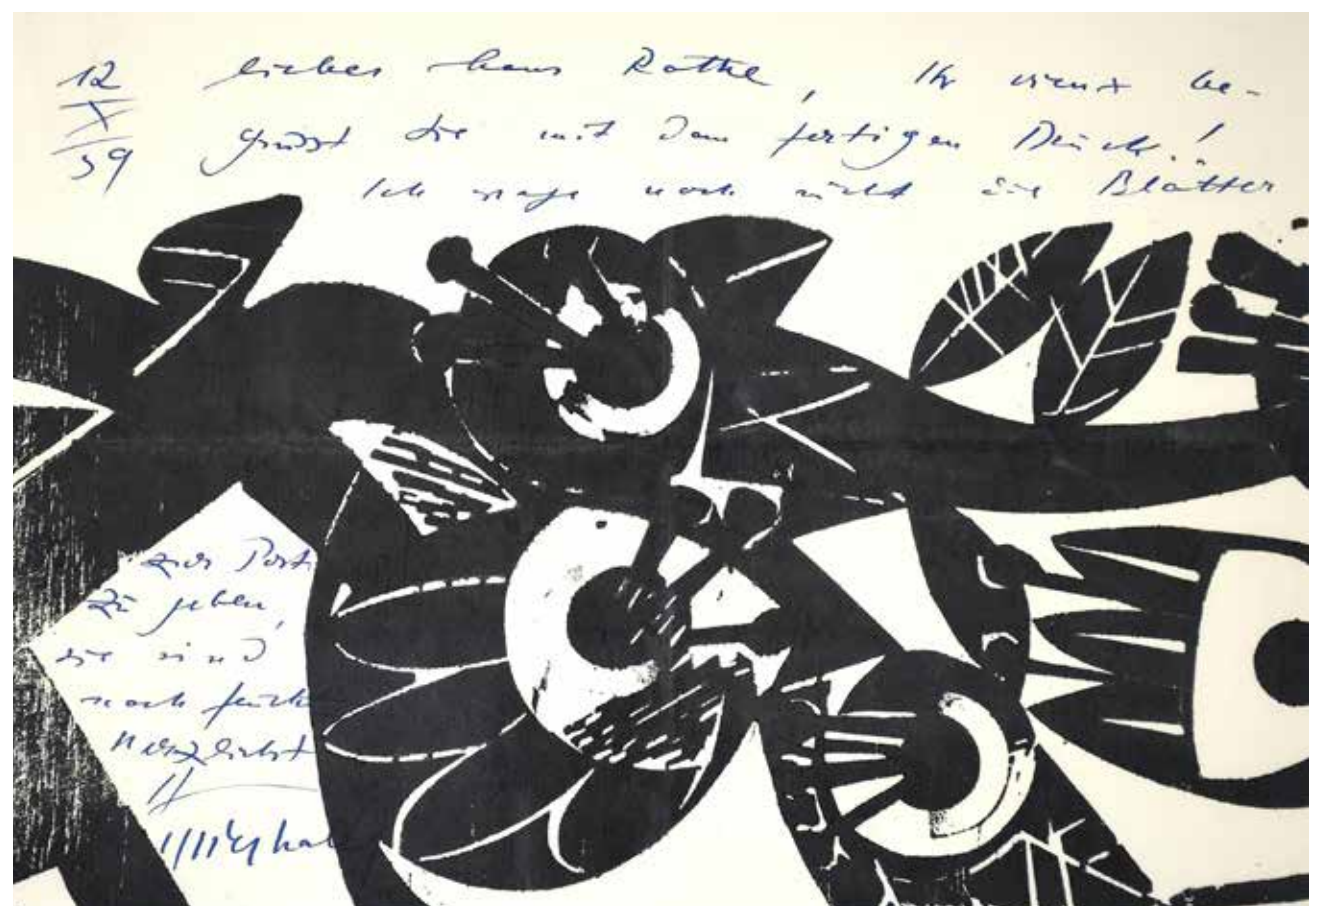 12
X
59
lieber hans Rothe, Ihr vieux be-
grüsst Sie mit dem fertigen Druck!
Ich wage noch nicht die Blätter
zur Post
zu geben,
sie sind
noch feucht
herzlichst